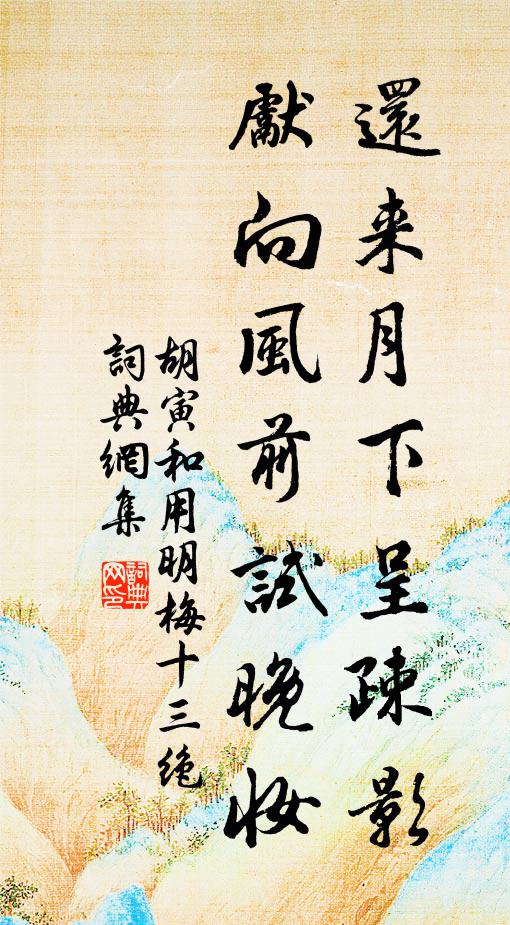 還来月下呈疎影
獻向風前試晚妝
胡寅和用明梅十三绝
詞典網集
詞典网印